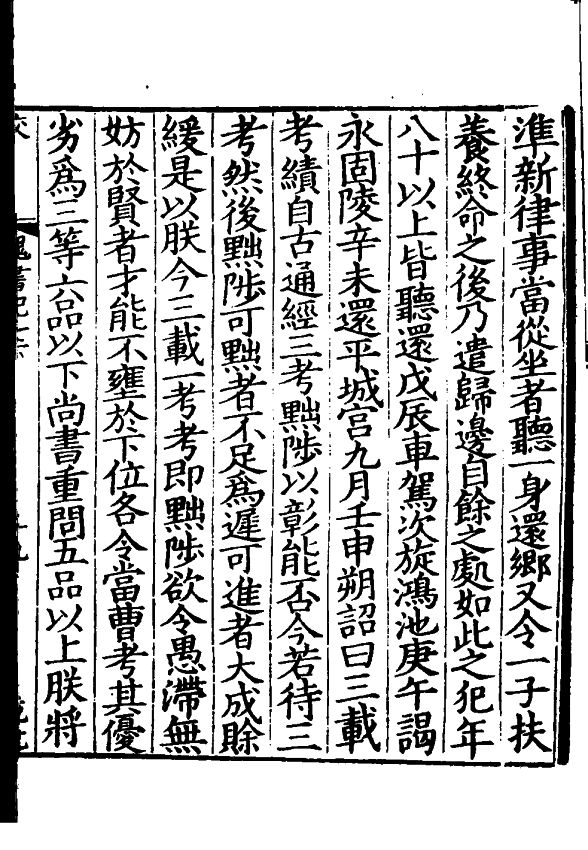 準新律事當從坐者聽一身還鄉又令一子扶
養終命之後乃遣歸邊自餘之處如此之犯年
八十以上皆聽還戊辰車駕次旋鴻池庚午謁
永固陵辛未還平城宮九月壬申朔詔曰三載
考績自古通經三考黜陟以彰能否今若待三
考然後黜陟可黜者不足爲遲可進者大成賒
緩是以朕今三載一考考即黜陟欲令愚滯無
妨於賢者才能不壅於下位各令當曹考其優
劣爲三等六品以下尚書重問五品以上朕將